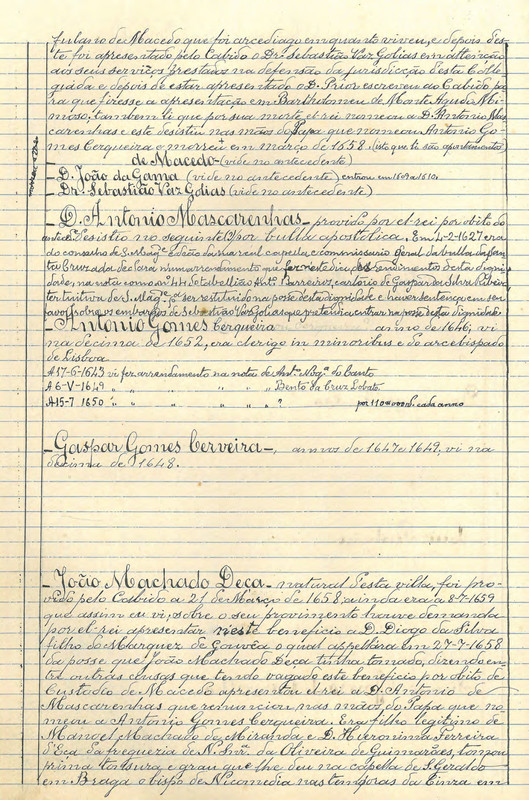 fulano de Macedo que foi arcediago emquanto viveu, e depois des-
te foi apresentado pelo Cabido o Dr. Sebastião Vaz Golias em attenção
aos seus serviços prestados na defensão da jurisdicção d'esta Colle-
giada e depois de estar apresentado o D. Prior escreveu ao Cabido pa-
ra que fizesse a apresentação em Bartholomeu de Monte Agudo Mi-
moso; tambem li que por sua morte el-rei nomeou a D. Antonio Mas-
carenhas e este desistiu nas mãos do Papa que nomeou Antonio Go-
mes Cerqueira o morreu em março de 1658. (isto que li são apontamentos)
de Macedo - (vide no antecedente)
- D. João da Gama (vide no antecedente) entrou em 1609 a 1610.
- Dr. Sebastião Vaz Golias (vide no antecedente)
- D. Antonio Mascarenhas - provido por el-rei por obito do
desistio no seguinte (?) por bulla apostolica. Em 4-2-1627 era
do conselho de S. Mag.e e deão da sua real capella e commissario geral da bulla da San-
ta Cruzada
de na nota com o n.º 44 de tabellião Ant.º Barreiros, cartorio de Gaspar da Silva
de S. Mag.e p.ª ser restituido na posse desta dignidade e haver sentença em seu
favor sobre os embargos de Sebastião Vaz Golias que pretendia entrar na posse desta dignidade.
- Antonio Gomes Cerqueira anno de 1646; vi
na decima de 1652, era clerigo in minoribus e do arcebispado
de Lisboa
A 17-6-1643 vi fez arrendamento na nota de Ant.º Nog.ª do Canto
A 6-V-1649 " " " " " Bento da Cruz Lobato
A 15-7 1650 " " " " " ? por 110 000 rs. cada anno
- Gaspar Gomes Cerveira -, annos de 1647 e 1649, vi na
decima de 1648.
- João Machado Deça - natural d'esta villa, foi pro-
vido pelo Cabido a 21 de Março de 1658; ainda era a 8-7-1659
que assim eu vi; sobre o seu provimento houve demanda
por el-rei apresentar n'este beneficio a D. Diogo da Silva
filho do Marquez de Gouvêa o qual appellára em 27-7-1658
da posse que João Machado Deça tinha tomado, dizendo en-
tre outras cousas que tendo vagado este beneficio por obito de
Custodio de Macedo apresentou el-rei a D. Antonio de
Mascarenhas que renunciou nas mãos do Papa que no-
meou a Antonio Gomes Cerqueira. Era filho legitimo de
Manoel Machado de Miranda e D. Hieronima Ferreira
d'Eça da freguezia de N. Snr.ª da Oliveira de Guimarães, tomou
prima tonsura, e grau que lhe deu na capella de S. Geraldo
em Braga o bispo de Nicomedia nas temporas da Cinza em